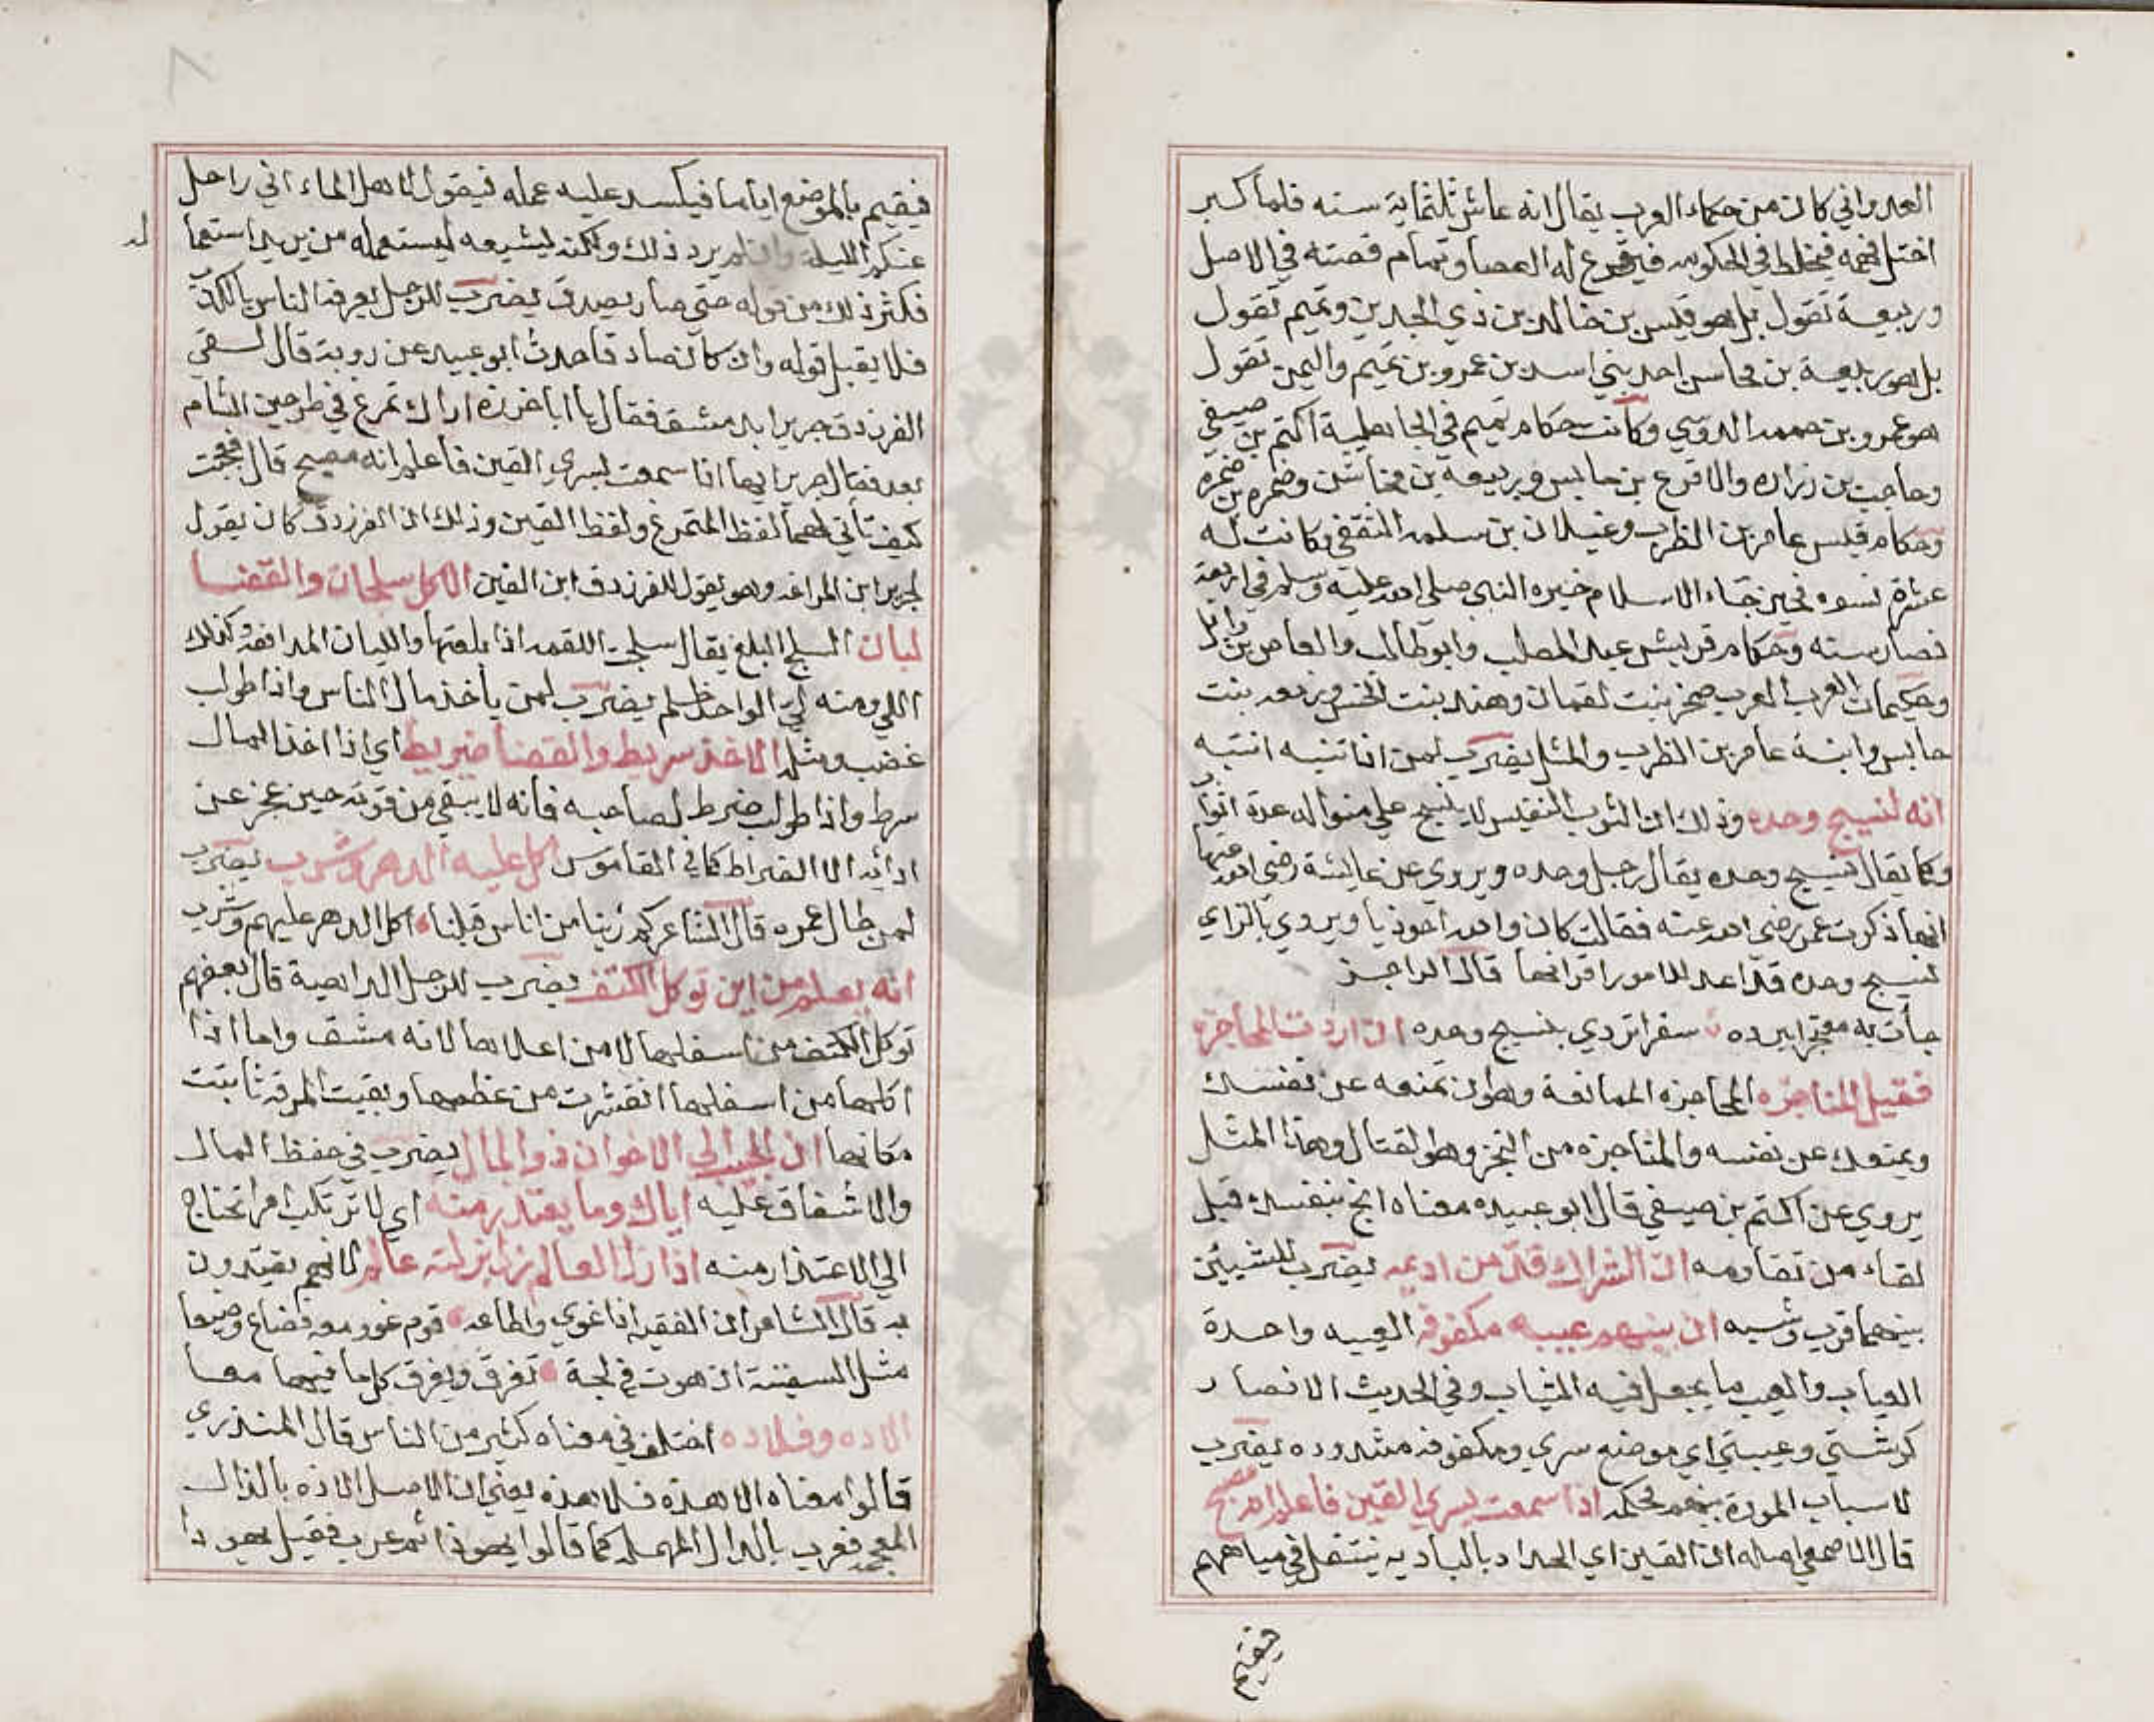 العدواني كان من حكماء العرب يقال انه عاش ثلثماية سنه فلما كبر
اختل فهمه فيخلط في الحكومه فيقرع له العصا وتمام قصته في الاصل
وربيعة تقول بل هو قيس بن خالد بن ذي الجدين وتميم تقول
بل هو ربيعة بن مخاسن احد بني اسد بن عمرو بن تميم واليمن تقول
هو عمرو بن حممه الدوسي وكانت حكام تميم في الجاهلية اكتم بن صيفي
وحاجب بن زراره والاقرع بن حابس وربيعه بن مخاشن وضمره بن ضمره
وحكام قيس عامر بن الظرب وغيلان بن سلمه الثقفي وكانت له
عشرة نسوه فحين جاء الاسلام خيره النبي صلى الله عليه وسلم في اربعة
فصار سنه وحكام قريش عبد المطلب وابو طالب والعاص بن وائل
وحكيمات العرب العرب صخر بنت لقمان وهند بنت الخس وجمعه بنت
حابس وابنة عامر بن الظرب والمثل يضرب لمن اذا تنبه انتبه
انه لنسيج وحده وذلك ان الثوب النفيس لا ينسج على منواله عدة اثواب
وكما يقال نسيج وحده يقال رجل وحده ويروي عن عايشة رضي الله عنها
انها ذكرت عمر رضي الله عنه فقالت كان والله احوذيا ويروي بالزاي
نسيج وحده قد اعد للامور اقرانها قال الراجز
جأت به معتجرا ببرده سفرا تردي بنسيج وحده ان اردت المحاجزه
فقبل المناجزه المحاجزه الممانعة وهو ان تمنعه عن نفسك
ويمنعك عن نفسه والمناجزه من النجز وهو القتال وهذا المثل
يروي عن اكتم بن صيفي قال ابو عبيده معناه انج بنفسك قبل
لقاء من تقاومه ان الشراك قد من اديمه يضرب للشيئين
بينهما قرب وشبه ان بينهم عيبه مكفوفه العيبه واحدة
العياب والعيب ما يجعل فيه الثياب وفي الحديث الانصار
كرشتي وعيبتي اي موضع سري ومكفوفه مشدوده يضرب
لاسباب المودة بينهم محكمه اذا سمعت بسري القين فاعلم انه مصبح
قال الاصمعي اصله ان القين اي الحداد بالباديه ينتقل في مياههم
فيقيم
فيقيم بالموضع اياما فيكسد عليه عمله فيقول لاهل الماء اني راحل
عنكم الليلة وان لم يرد ذلك ولكنه ليشيعه ليستعمله من يريد استعما
له
فكثر ذلك من قوله حتى صار يصدق يضرب للرجل يعرفه الناس بالكذب
فلا يقبل قوله وان كان صادقا حدث ابو عبيد عن روبة قال لقي
الفرزدق جريرا بدمشق فقال يا ابا حزره اراك تمرغ في طواحين الشام
بعد فقال جرير ايها اذا سمعت بسري القين فاعلم انه مصبح قال فعجبت
كيف تأتي لهما لفظ المتمرغ ولفظ القين وذلك ان الفرزدق كان يقول
لجرير ابن المراغه وهو يقول للفرزدق ابن القين الاكل سلجان والقضا
ليان السلج البلع يقال سلجت اللقمه اذا بلعتها والليان المدافعه وكذلك
اللي ومنه لي الواجد ظلم يضرب لمن يأخذ مال الناس واذا طولب
غضب ومثله الاخذ سريط والقضا ضريط اي اذا اخذ المال
سرط واذا طولب ضرط لصاحبه فانه لا يبقي من قوته حين عجز عن
ادائه الا الضراط كما في القاموس اكل عليه الدهر وشرب يضرب
لمن طال عمره قال الشاعر كم رئينا من اناس قبلنا اكل الدهر عليهم وشرب
انه يعلم من اين توكل الكتف يضرب للرجل الداهية قال بعضهم
توكل الكتف من اسفلها لا من اعلاها لانه مشق واما اذا
اكلها من اسفلها انقشرت من عظمها وبقيت المرقه ثابتت
مكانها ان الحبيب الى الاخوان ذو المال يضرب في حفظ المال
والاشفاق عليه اياك وما يعتذر منه اي لا ترتكب امرا تحتاج
الي الاعتذار منه اذا زل العالم زل بزلته عالم لانهم يقتدون
به قال الشاعر ان الفقيه اذا غوي واطاعه قوم غووا معه فضاع وضيعا
مثل السفينة ان هوت في لجة تغرق ويغرق كل ما فيها معا
الا ده وفلا ده اختلف في معناه كثير من الناس قال المنذري
قالوا معناه الا هذه فلا هذه يعني ان الاصل الا ذه بالذال
المعجمه فعرب بالدال المهمله كما قالوا يهوذا ثم عرب فقيل يهودا